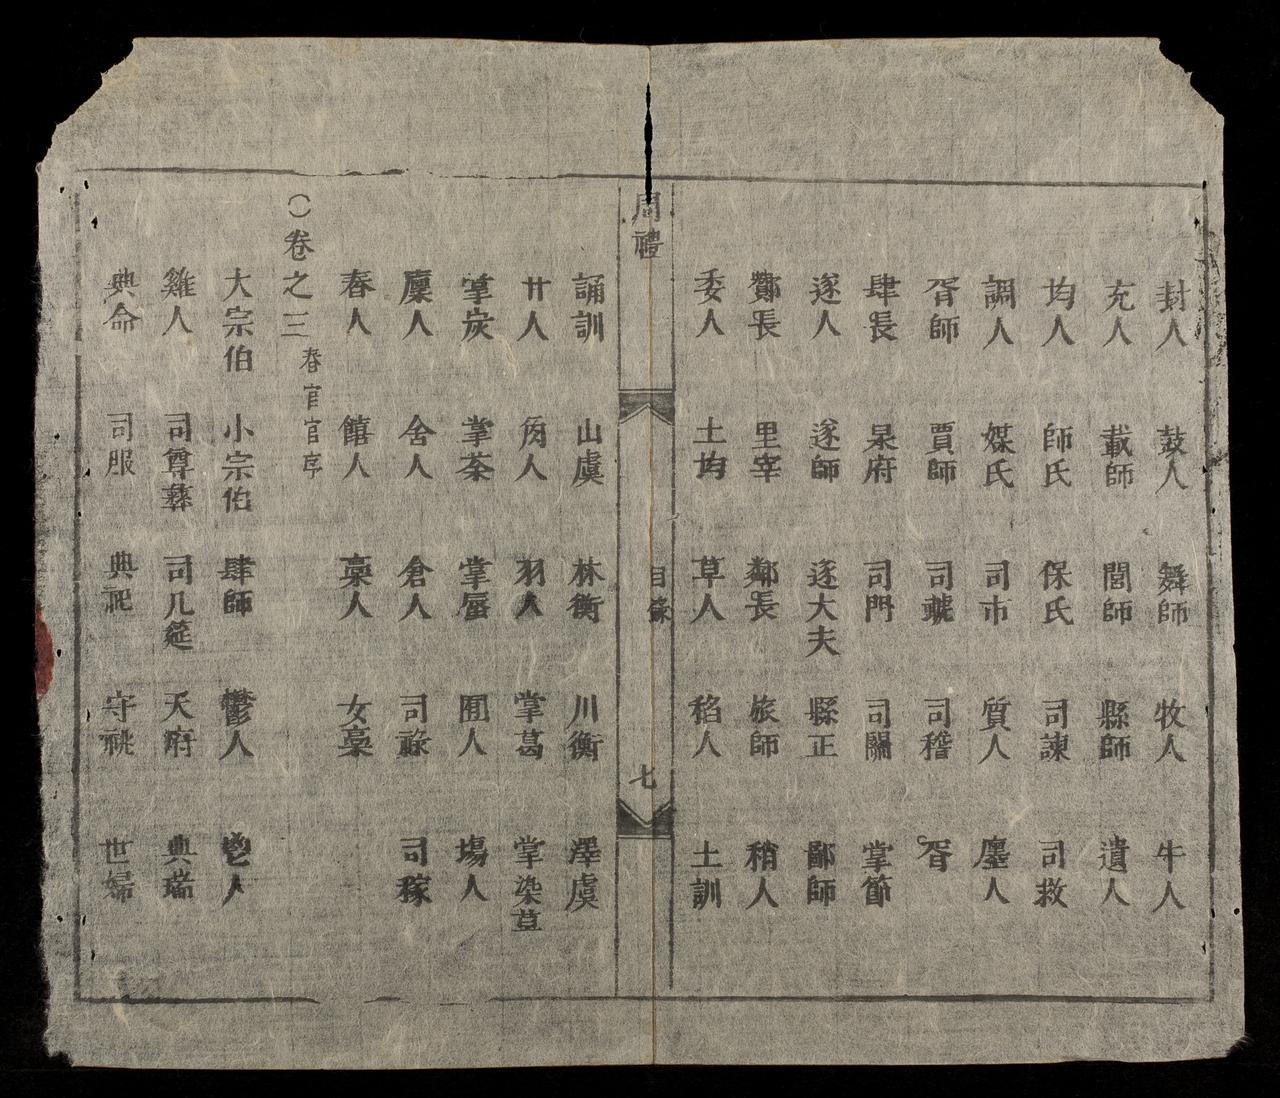 封人 鼓人 舞師 牧人 牛人
充人 載師 閭師 縣師 遺人
均人 師氏 保氏 司諫 司救
調人 媒氏 司市 質人 廛人
胥師 賈師 司虣 司稽 胥
肆長 泉府 司門 司關 掌節
遂人 遂師 遂大夫 縣正 鄙師
酇長 里宰 鄰長 旅師 稍人
委人 土均 草人 稻人 土訓
周禮 目錄 七
誦訓 山虞 林衡 川衡 澤虞
卝人 角人 羽人 掌葛 掌染草
掌炭 掌荼 掌蜃 囿人 場人
廩人 舍人 倉人 司祿 司稼
舂人 饎人 稾人 女稾
○卷之三 春官官序
大宗伯 小宗伯 肆師 鬱人 鬯人
雞人 司尊彝 司几筵 天府 典瑞
典命 司服 典祀 守祧 世婦